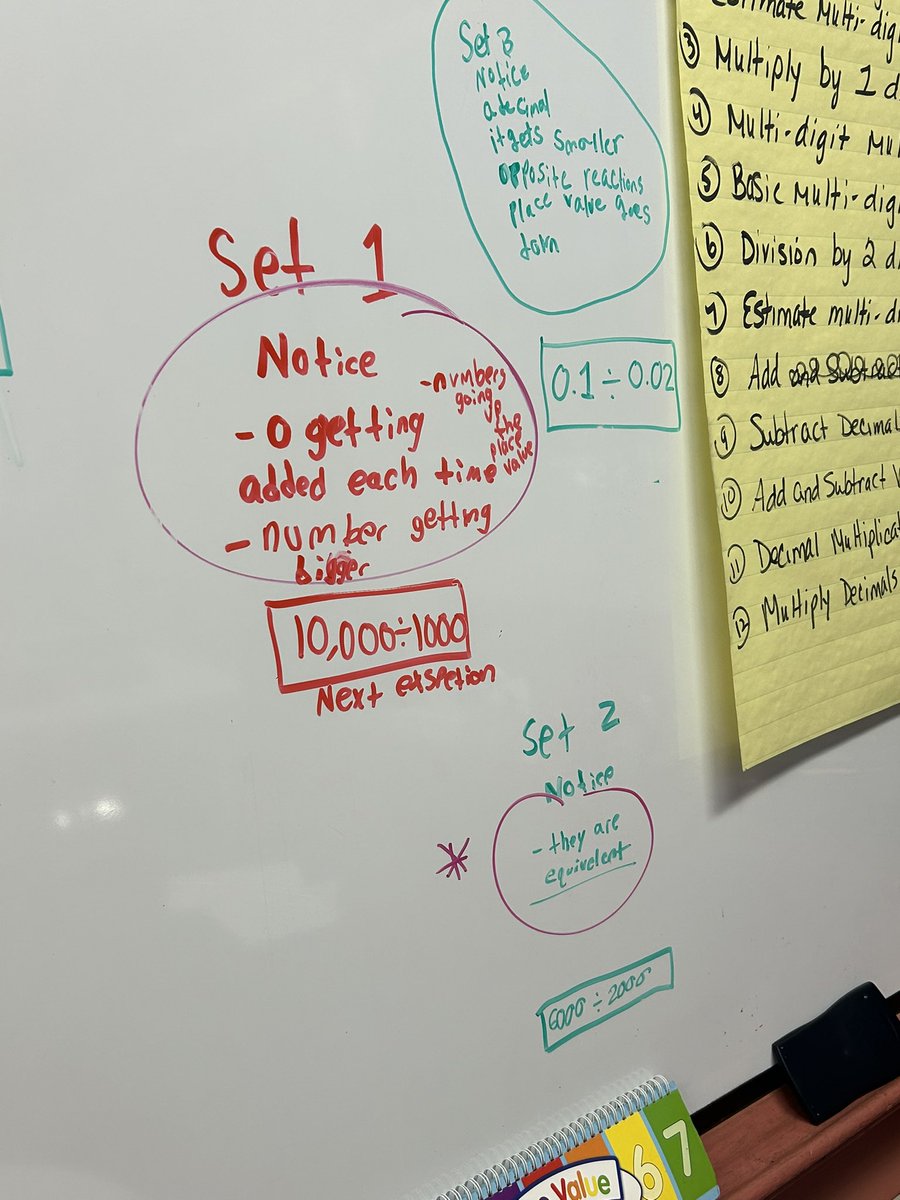 Set 3
Notice
a decimal
it gets smaller
opposite reactions
place value goes
down
Set 1
Notice
- 0 getting
added each time
- number getting
bigger
- numbers
going
the
place
value
10,000÷1000
Next
0.1 ÷ 0.02
Set 2
Notice
- they are
equivelent
6000 ÷ 2000
Estimate Multi-dig
③ Multiply by 1 d
④ Multi-digit Mu
⑤ Basic Multi-dig
⑥ Division by 2 d
⑦ Estimate multi-di
⑧ Add and Subtract
⑨ Subtract Decimal
⑩ Add and Subtract
⑪ Decimal Multiplicat
⑫ Multiply Decimals
Value
6
7